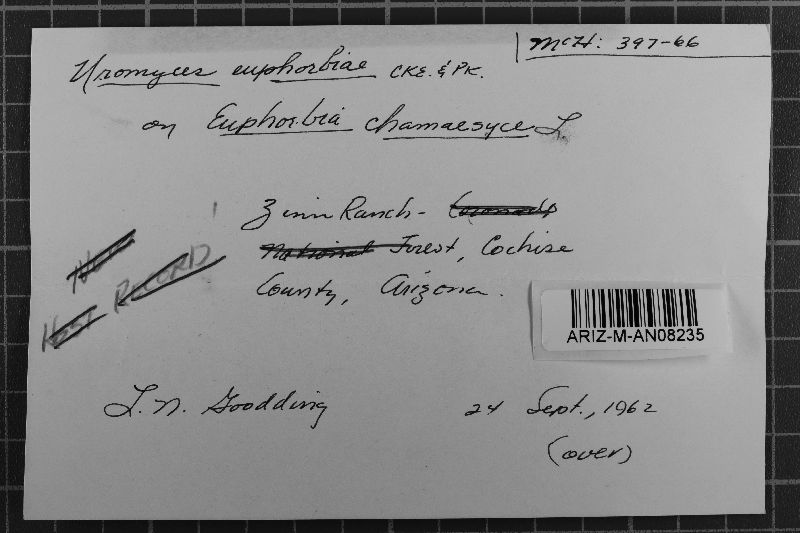 McH: 397-66
Uromyces euphorbiae CKE. & PK.
on Euphorbia chamaesyce L.
Zinn Ranch - Coronado
National Forest, Cochise
County, Arizona.
New
Host Record
ARIZ-M-AN08235
L.N. Goodding 24 Sept., 1962
(over)